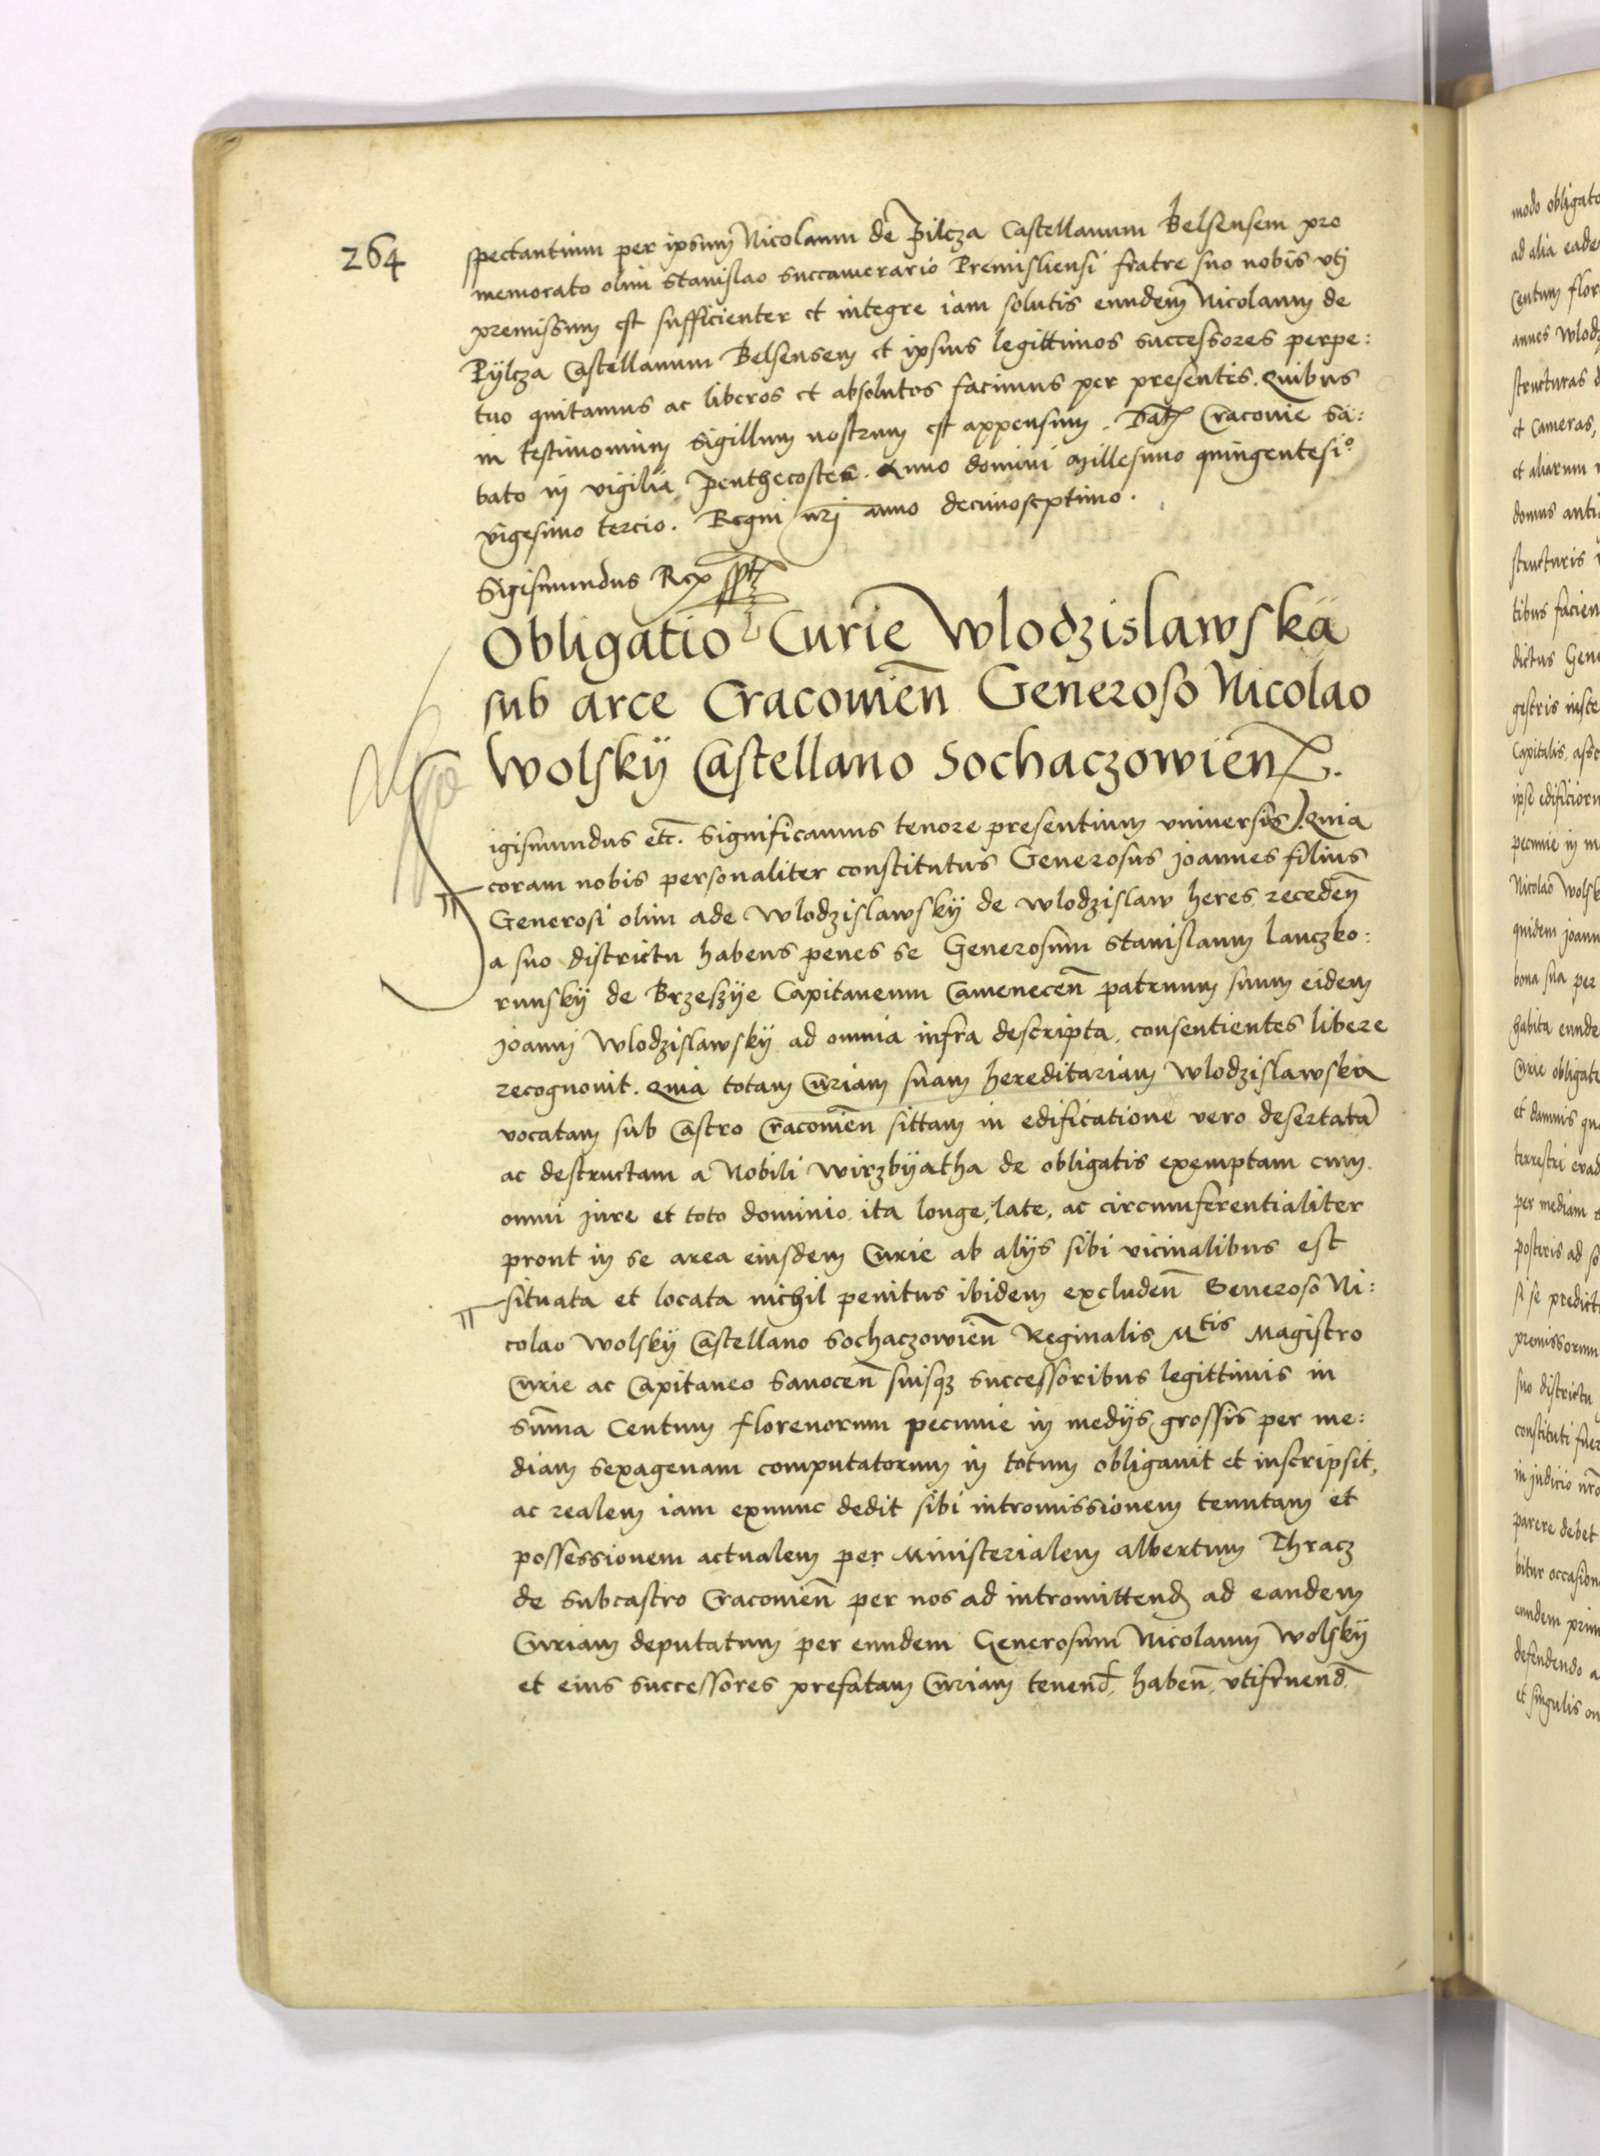 264
spectantium per ipsum Nicolaum de Pilcza Castellanum Belsensem pro
memorato olim Stanislao Succamerario Premisliensi fratre suo nobis vti
premissum est sufficienter et integre iam solutis eundem Nicolaum de
Pÿlcza Castellanum Belsensem et ipsius legittimos successores perpe:
tuo quitamus ac liberos et absolutos facimus per presentes. Quibus
in testimonium Sigillum nostrum est appensum. Dat Cracovie Sa:
bato in vigilia Penthecostes. Anno domini Millesimo quingentesi°
vigesimo tercio. Regni nri anno decimoseptimo.
Sigismundus Rex sspt
Obligatio Curie Wlodzislawska
sub arce Cracovien Generoso Nicolao
Wolskÿ Castellano Sochaczowien.
Sigismundus etc. Significamus tenore presentium vniversis. Quia
coram nobis personaliter constitutus Generosus Joannes filius
Generosi olim Ade Wlodzislawskÿ de Wlodzislaw heres receden
a suo districtu habens penes se Generosum Stanislaum Lanczko:
runskÿ de Brzeszÿe Capitaneum Camenecen patruum suum eidem
Joanni Wlodzislawskÿ ad omnia infra descripta consentientes libere
recognovit. Quia totam Curiam suam hereditariam Wlodzislawska
vocatam sub Castro Cracovien sittam in edificatione vero desertata
ac destructam a Nobili Wirzbÿatha de obligatis exemptam cum
omni jure et toto dominio ita longe, late, ac circumferentialiter
prout in se area eiusdem Curie ab alÿs sibi vicinalibus est
situata et locata nichil penitus ibidem excluden Generoso Ni:
colao Wolskÿ Castellano Sochaczowien Reginalis Mtis Magistro
Curie ac Capitaneo Sanocen suisq successoribus legittimis in
suma Centum florenorum pecunie in medÿs grossis per me:
diam sexagenam computatorum in totum obligavit et inscripsit,
ac realem iam exnunc dedit sibi intromissionem tenutam et
possessionem actualem per Ministerialem Albertum Thracz
de Subcastro Cracovien per nos ad intromittend ad eandem
Curiam deputatum per eundem Generosum Nicolaum Wolskÿ
et eius successores prefatam Curiam tenend, haben, vtifruend
modo obligato
ad alia eade
Centum flor
annes Wlodz
structuras d
et Cameras,
et aliarum
domus anti
structuris
tibus facien
dictus Gene
gestris inse
Capitalis, asc
ipse edificioru
pecunie in m
Nicolao Wolsk
quidem Joann
bona sua per
habita eunde
Curie obligat
et damnis qu
terrestri evad
per mediam
posteris ad so
si se predict
premissorum
suo districtu
constituti fuer
in judicio nro
parere debet
bitur occasion
eundem prim
defendendo a
et singulis om